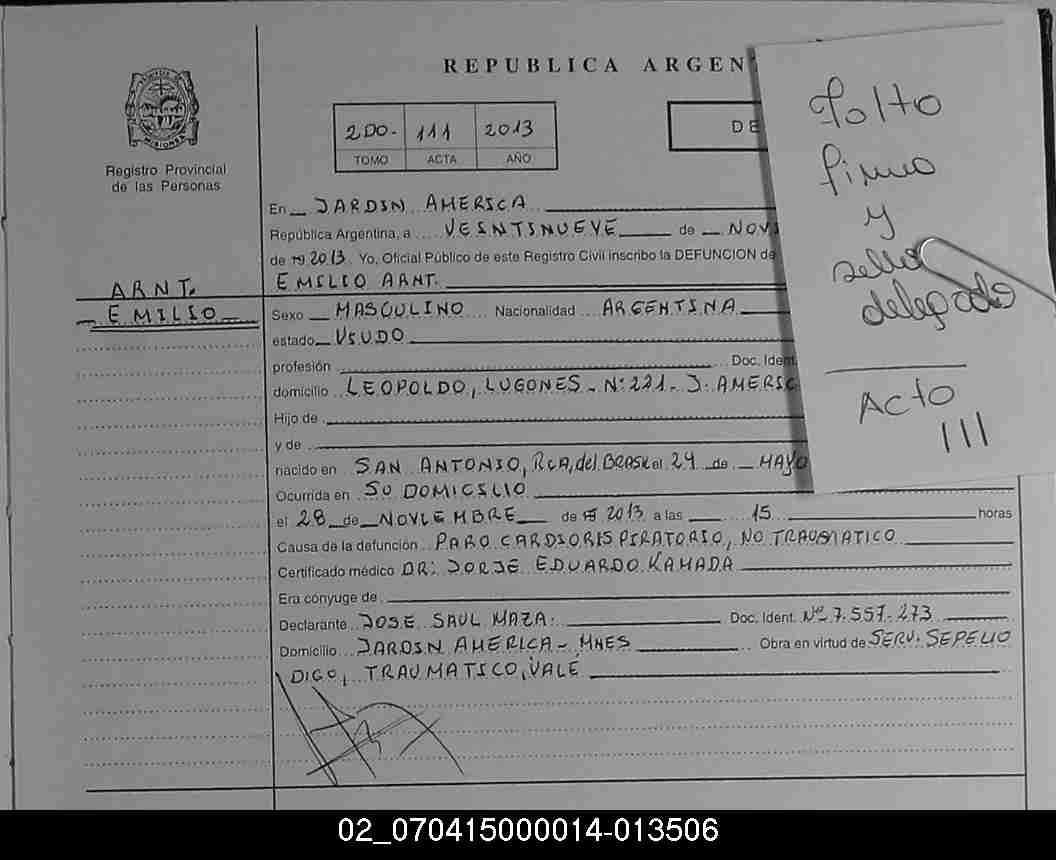 REPUBLICA ARGEN
2DO. 111 2013
TOMO ACTA AÑO
DE
Registro Provincial
de las Personas
En JARDIN AMERICA
República Argentina, a VEINTINUEVE de NOVI
de 19 2013. Yo, Oficial Público de este Registro Civil inscribo la DEFUNCION de
EMILIO ARNT.
ARNT.
EMILIO
Sexo MASCULINO Nacionalidad ARGENTINA
estado VIUDO
profesión Doc. Ident
domicilio LEOPOLDO, LUGONES - Nº 221 - J. AMERIC
Hijo de
y de
nacido en SAN ANTONIO, RCA, del BRASIL el 24 de MAYO
Ocurrida en SU DOMICILIO
el 28 de NOVIEMBRE de 19 2013 a las 15 horas
Causa de la defunción PARO CARDIORISPIRATORIO, NO TRAUMATICO
Certificado médico DR: JORJE EDUARDO KAMADA
Era cónyuge de
Declarante JOSE SAUL MAZA. Doc. Ident. Nº 7.557.273
Domicilio JARDIN AMERICA - MNES Obra en virtud de SERV. SEPELIO
DIGO, TRAUMATICO, VALE
Falta
firma
y
sello
delegado
Acta
111
02_070415000014-013506